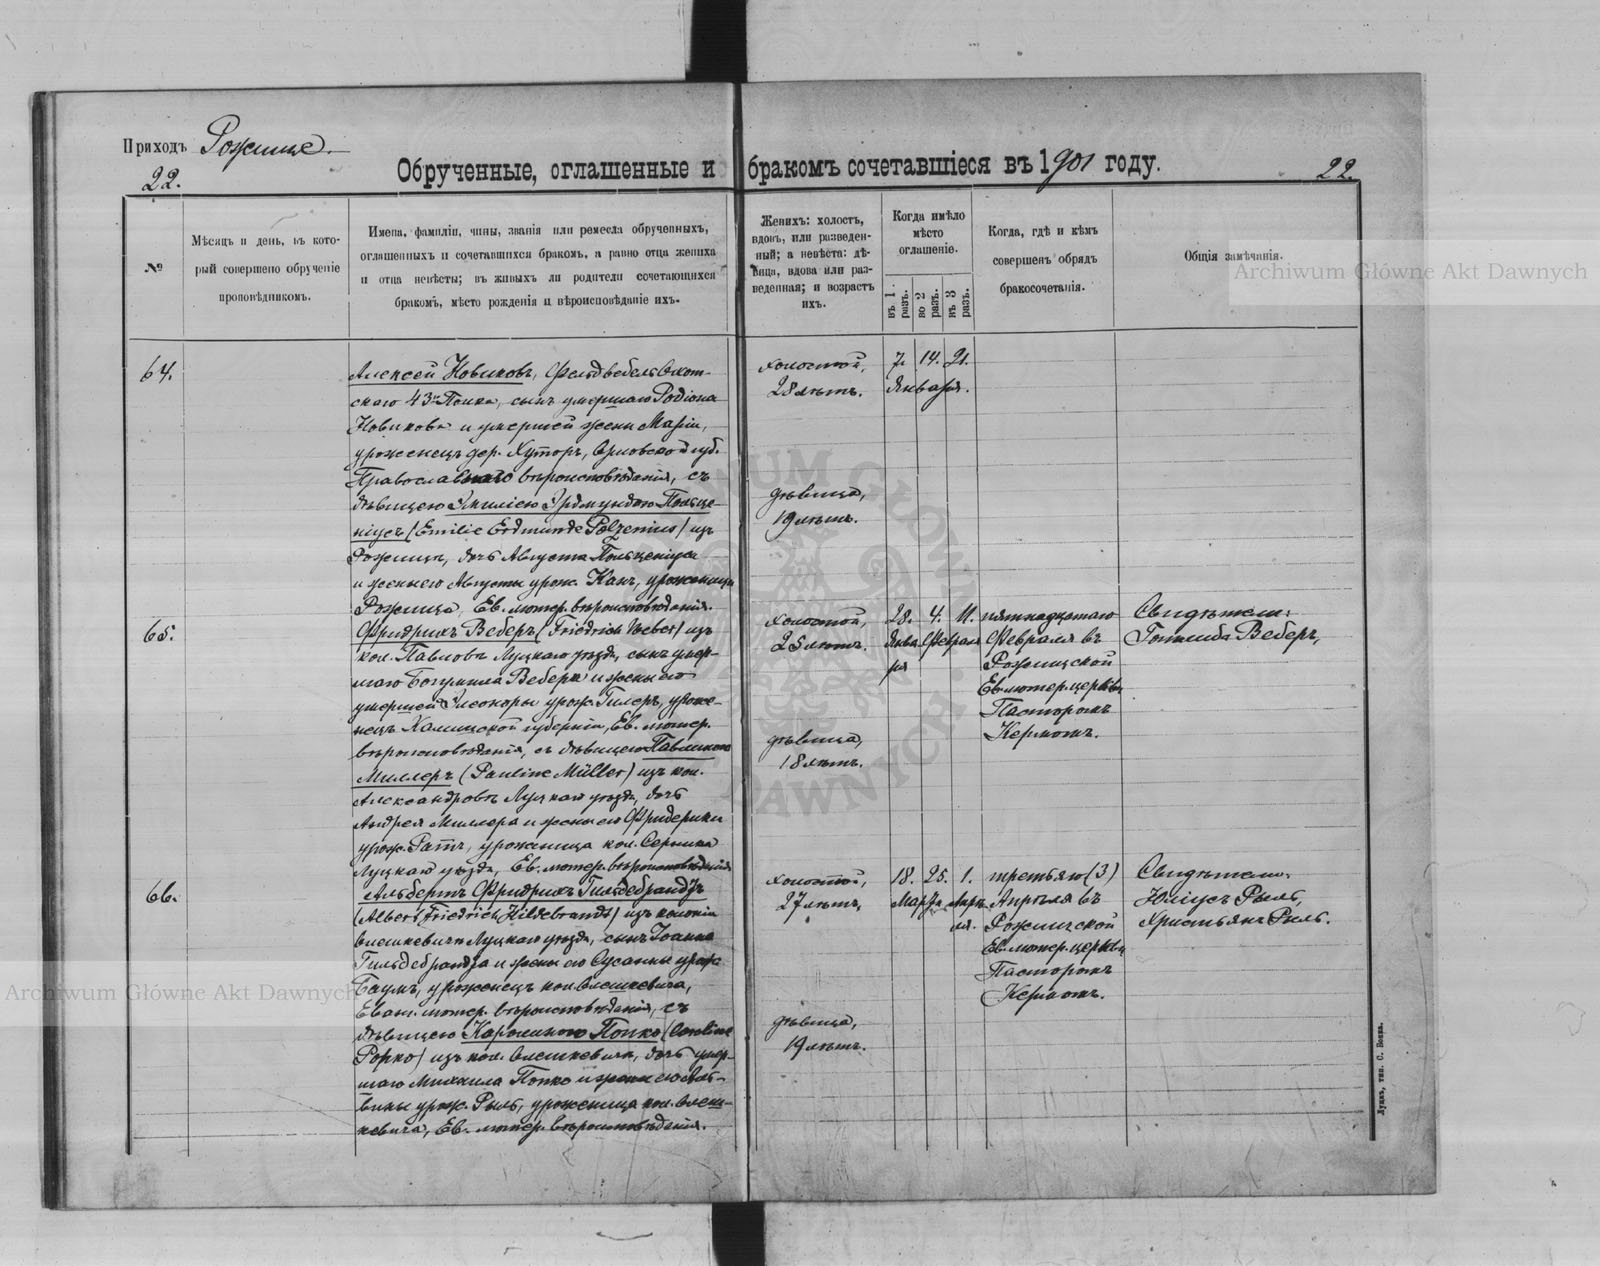 Приходъ Рожище.
22.
Обрученные, оглашенные и бракомъ сочетавшіеся въ 1901 году.
22.
№
Мѣсяцъ и день, въ кото-
рый совершено обрученіе
проповѣдникомъ.
Имена, фамиліи, чины, званія или ремесла обрученныхъ,
оглашенныхъ и сочетавшихся бракомъ, а равно отца жениха
и отца невѣсты; въ живыхъ ли родители сочетающихся
бракомъ, мѣсто рожденія и вѣроисповѣданіе ихъ.
Женихъ: холостъ,
вдовъ, или разведен-
ный; а невѣста: дѣ-
вица, вдова или раз-
веденная; и возрастъ
ихъ.
Когда имѣло
мѣсто
оглашеніе.
въ 1 разъ.
во 2 разъ.
въ 3 разъ.
Когда, гдѣ и кѣмъ
совершенъ обрядъ
бракосочетанія.
Общія замѣчанія.
Archiwum Główne Akt Dawnych
64.
Алексей Новиковъ, Фельдвебель Охот-
скаго 43го Полка, сынъ умершаго Родіона
Новикова и умершей жены Маріи,
уроженецъ дер. Хуторъ, Орловской губ.
Православнаго вѣроисповѣданія, съ
дѣвицею Эмиліею Эрдмундою Польце-
ніусъ (Emilie Erdmunde Polzenius) изъ
Рожищъ, дочь Августа Польценіуса
и жены его Августы урож. Канъ, уроженица
Рожища, Ев. лютер. вѣроисповѣданія.
холостой,
28 лѣтъ.
дѣвица,
19 лѣтъ.
7. 14. 21.
Января.
65.
Фридрихъ Веберъ (Friedrich Weber) изъ
кол. Павловъ Луцкаго уѣзда, сынъ умер-
шаго Богумила Вебера и жены его
умершей Элеоноры урож. Гилеръ, уроже-
нецъ Калишской губерніи, Ев. лютер.
вѣроисповѣданія, съ дѣвицею Павлиною
Миллеръ (Pauline Müller) изъ кол.
Александровъ Луцкаго уѣзда, дочь
Андрея Миллера и жены его Фридерики
урож. Ратъ, уроженица кол. Серника
Луцкаго уѣзда, Ев. лютер. вѣроисповѣданія
холостой,
25 лѣтъ.
дѣвица,
18 лѣтъ.
28. 4. 11.
Января Февраля
пятнадцатаго
Февраля въ
Рожищской
Ев. лютер. церкви
Пасторомъ
Кермомъ.
Свидѣтели:
Готлибъ Веберъ,
66.
Альбертъ Фридрихъ Гильдебрандтъ
(Albert Friedrich Hildebrandt) изъ колоніи
Олешкевичи Луцкаго уѣзда, сынъ Іоанна
Гильдебрандта и жены его Сусанны урож.
Баумъ, уроженецъ кол. Олешкевича,
Еванг. лютер. вѣроисповѣданія, съ
дѣвицею Каролиною Попко (Caroline
Popko) изъ кол. Олешкевичи, дочь умер-
шаго Михаила Попко и жены его Аль-
вины урож. Рыль, уроженица кол. Олеш-
кевича, Ев. лютер. вѣроисповѣданія.
холостой,
27 лѣтъ,
дѣвица,
19 лѣтъ.
18. 25. 1.
Марта Апрѣля.
третьяго (3)
Апрѣля въ
Рожищской
Ев. лютер. церкви
Пасторомъ
Кермомъ.
Свидѣтели:
Юліусъ Рыль,
Христьянъ Рыль.
Archiwum Główne Akt Dawnych
Луцкъ, тип. С. Бонка.